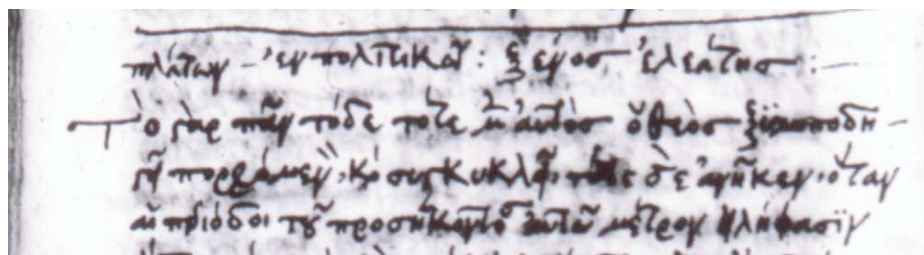 πλάτων – ἐν πολιτικῶ : ξένος ἐλεάτης :–
Τὸ γὰρ πᾶν τόδε τοτὲ μὲν αὐτὸς ὁ θεὸς ξυμποδη–
γεῖ πορευόμενον, καὶ συγκυκλεῖ, τότε δὲ ἀνῆκεν, ὅταν
αἱ περίοδοι τοῦ προσήκοντος αὐτῶ μέτρον εἰλήφασϊν